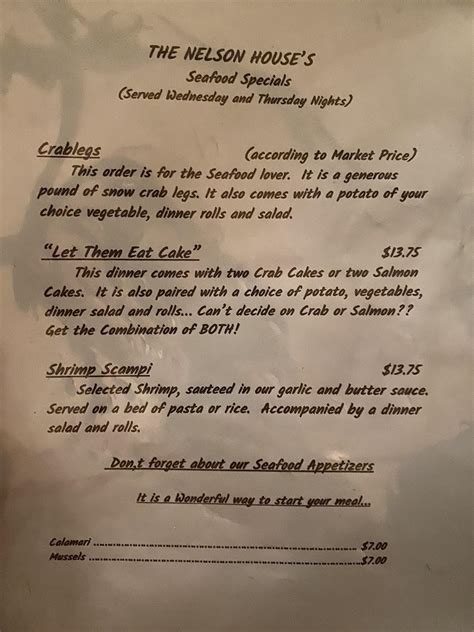 THE NELSON HOUSE'S
Seafood Specials
(Served Wednesday and Thursday Nights)
Crablegs (according to Market Price)
This order is for the Seafood lover. It is a generous
pound of snow crab legs. It also comes with a potato of your
choice vegetable, dinner rolls and salad.
"Let Them Eat Cake" $13.75
This dinner comes with two Crab Cakes or two Salmon
Cakes. It is also paired with a choice of potato, vegetables,
dinner salad and rolls... Can't decide on Crab or Salmon??
Get the Combination of BOTH!
Shrimp Scampi $13.75
Selected Shrimp, sauteed in our garlic and butter sauce.
Served on a bed of pasta or rice. Accompanied by a dinner
salad and rolls.
Don,t forget about our Seafood Appetizers
It is a Wonderful way to start your meal...
Calamari ........................................................ $7.00
Mussels ........................................................ $7.00